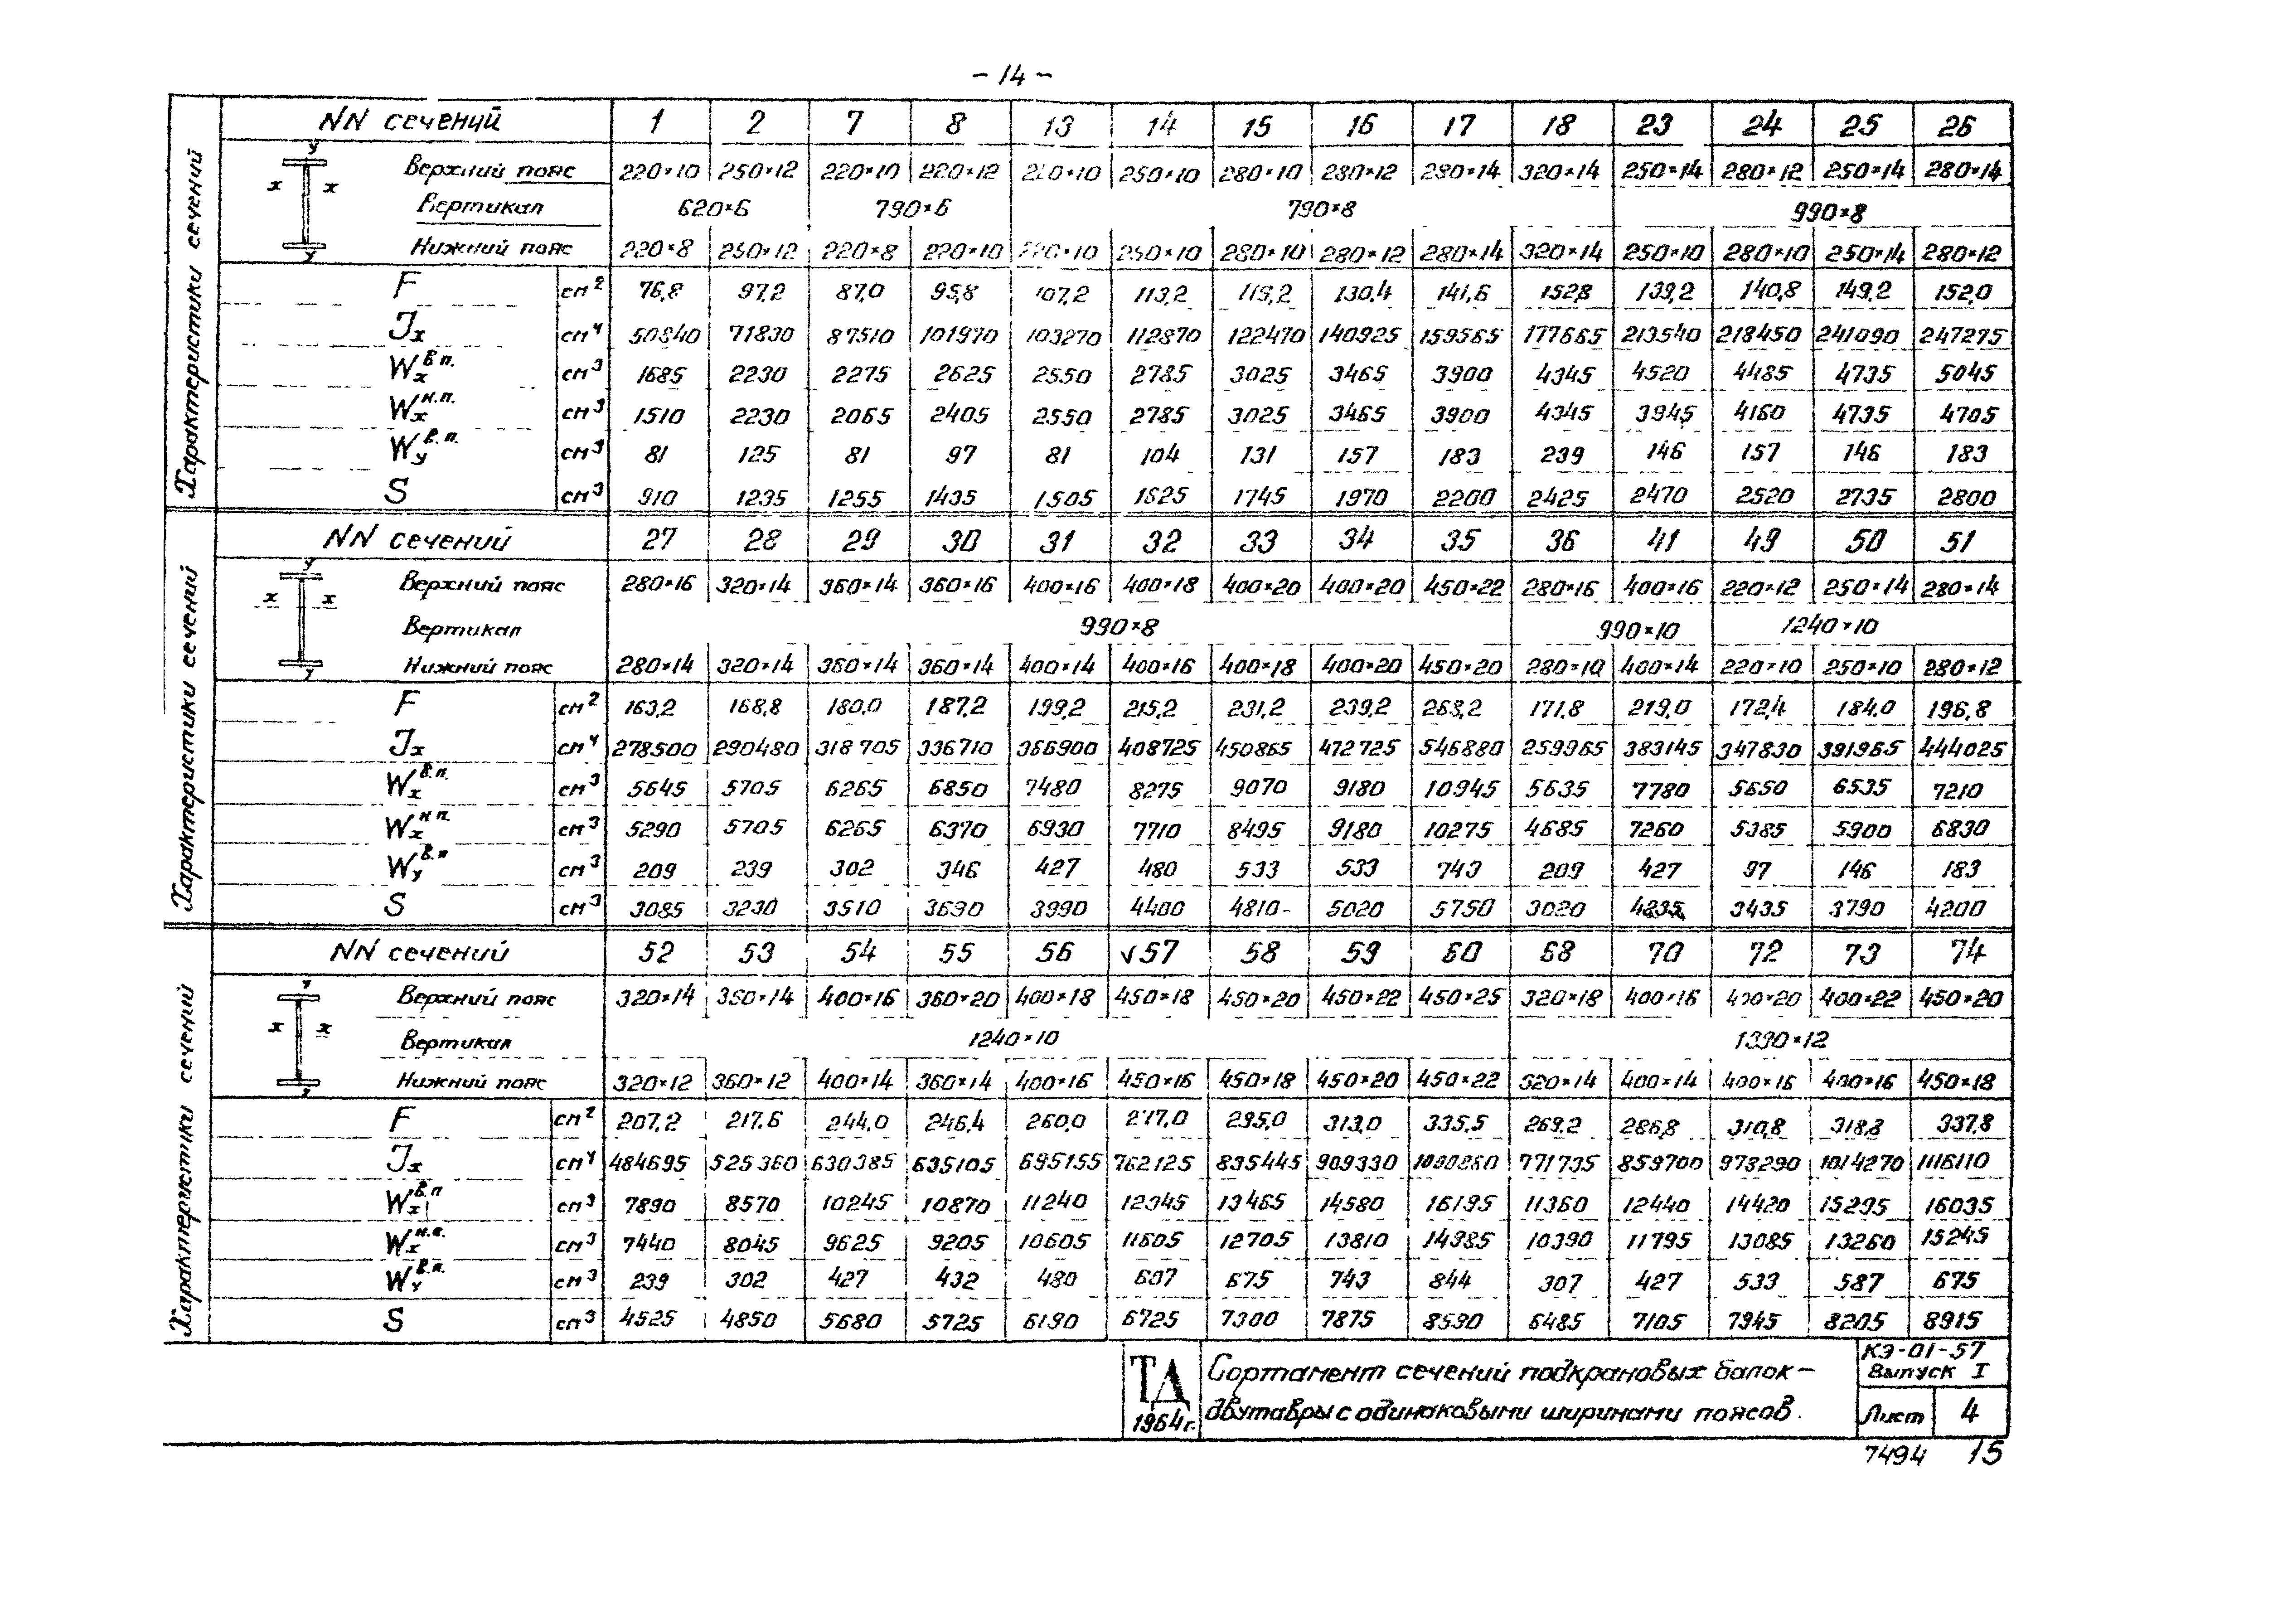 - 14 -
Характеристики сечений
NN сечений 1 2 7 8 13 14 15 16 17 18 23 24 25 26
у х х у
Верхний пояс 220×10 250×12 220×10 220×12 220×10 250×10 280×10 280×12 280×14 320×14 250×14 280×12 250×14 280×14
Вертикал 620×6 790×6 790×8 990×8
Нижний пояс 220×8 250×12 220×8 220×10 220×10 250×10 280×10 280×12 280×14 320×14 250×10 280×10 250×14 280×12
F см² 76,8 97,2 87,0 95,8 107,2 113,2 119,2 130,4 141,6 152,8 139,2 140,8 149,2 152,0
Jx см⁴ 50840 71830 87510 101970 103270 112870 122470 140925 159565 177665 213540 218450 241090 247275
Wx в.п. см³ 1685 2230 2275 2625 2550 2785 3025 3465 3900 4345 4520 4485 4735 5045
Wx н.п. см³ 1510 2230 2065 2405 2550 2785 3025 3465 3900 4345 3945 4160 4735 4705
Wy в.п. см³ 81 125 81 97 81 104 131 157 183 239 146 157 146 183
S см³ 910 1235 1255 1435 1505 1625 1745 1970 2200 2425 2470 2520 2735 2800
Характеристики сечений
NN сечений 27 28 29 30 31 32 33 34 35 36 41 49 50 51
у х х у
Верхний пояс 280×16 320×14 360×14 360×16 400×16 400×18 400×20 400×20 450×22 280×16 400×16 220×12 250×14 280×14
Вертикал 990×8 990×10 1240×10
Нижний пояс 280×14 320×14 360×14 360×14 400×14 400×16 400×18 400×20 450×20 280×10 400×14 220×10 250×10 280×12
F см² 163,2 168,8 180,0 187,2 199,2 215,2 231,2 239,2 268,2 171,8 219,0 172,4 184,0 196,8
Jx см⁴ 278500 290480 318705 336710 366900 408725 450865 472725 546880 259965 383145 347830 391965 444025
Wx в.п. см³ 5645 5705 6265 6850 7480 8275 9070 9180 10945 5635 7780 5650 6535 7210
Wx н.п. см³ 5290 5705 6265 6370 6930 7710 8495 9180 10275 4685 7260 5385 5900 6830
Wy в.п. см³ 209 239 302 346 427 480 533 533 743 209 427 97 146 183
S см³ 3085 3230 3510 3690 3990 4400 4810 5020 5750 3020 4235 3435 3790 4200
Характеристики сечений
NN сечений 52 53 54 55 56 √57 58 59 60 68 70 72 73 74
у х х у
Верхний пояс 320×14 360×14 400×16 360×20 400×18 450×18 450×20 450×22 450×25 320×18 400×16 400×20 400×22 450×20
Вертикал 1240×10 1390×12
Нижний пояс 320×12 360×12 400×14 360×14 400×16 450×16 450×18 450×20 450×22 320×14 400×14 400×16 400×16 450×18
F см² 207,2 217,6 244,0 246,4 260,0 277,0 295,0 313,0 335,5 269,2 286,8 310,8 318,8 337,8
Jx см⁴ 484695 525360 630385 635105 695155 762125 835445 909330 1000260 771735 859700 973290 1014270 1116110
Wx в.п. см³ 7890 8570 10245 10870 11240 12345 13465 14580 16195 11360 12440 14420 15295 16035
Wx н.п. см³ 7440 8045 9625 9205 10605 11605 12705 13810 14985 10390 11795 13085 13260 15245
Wy в.п. см³ 239 302 427 432 480 607 675 743 844 307 427 533 587 675
S см³ 4525 4850 5680 5725 6190 6725 7300 7875 8590 6485 7105 7945 8205 8915
ТД
1964г.
Сортамент сечений подкрановых балок –
двутавры с одинаковыми ширинами поясов.
КЭ-01-57
Выпуск I
Лист 4
7494 15